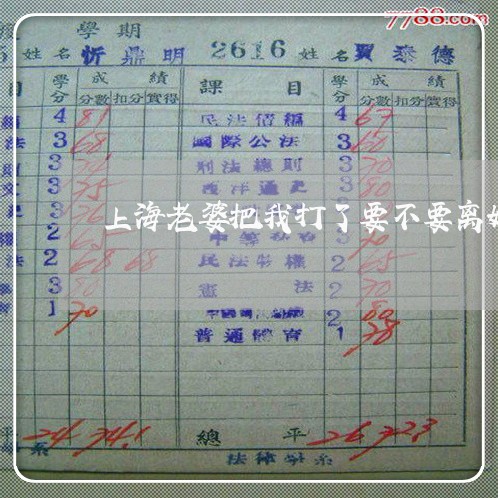 7788.com
學期
姓名 忻鼎明 2616 姓名 賈泰德
目 學分 成績 課目 學分 成績
分數 扣分 實得 分數 扣分 實得
4 81 民法債編 4 67
法 3 68 國際公法 3 60
3 刑法總則 3 70
3 75 西洋通史 3 80
上海老婆把我打了要不要离婚
2 3 70
法 2 68 68 民法物權 2 65
3 80 憲法 2 70
1 70 2 80
普通體育 1 78
平 24 74.1 總平 26 72.3
系 法律學系